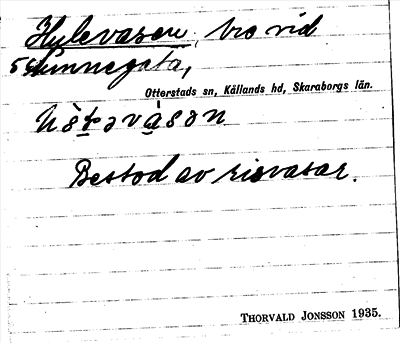 Hylevasen, bro vid
Otterstads sn, Kållands hd, Skaraborgs län.
Bestod av risvasar.
THORVALD JONSSON 1935.